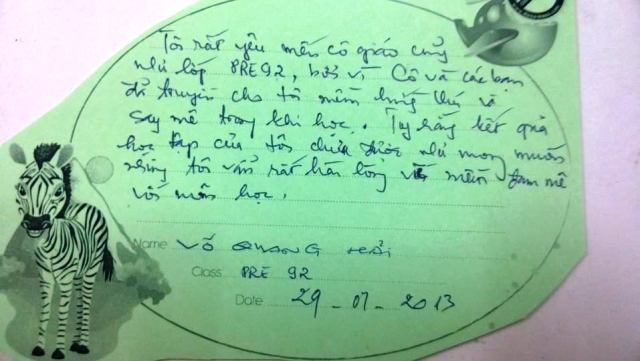 Tôi rất yêu mến cô giáo cũng
như lớp PRE 92, bởi vì Cô và các bạn
đã truyền cho tôi niềm hứng thú và
say mê trong khi học. Tuy rằng kết quả
học tập của tôi chưa được như mong muốn
nhưng tôi vẫn rất hài lòng về niềm đam mê
với môn học.
Name VÕ QUANG HẢI
Class PRE 92
Date 29 - 07 - 2013